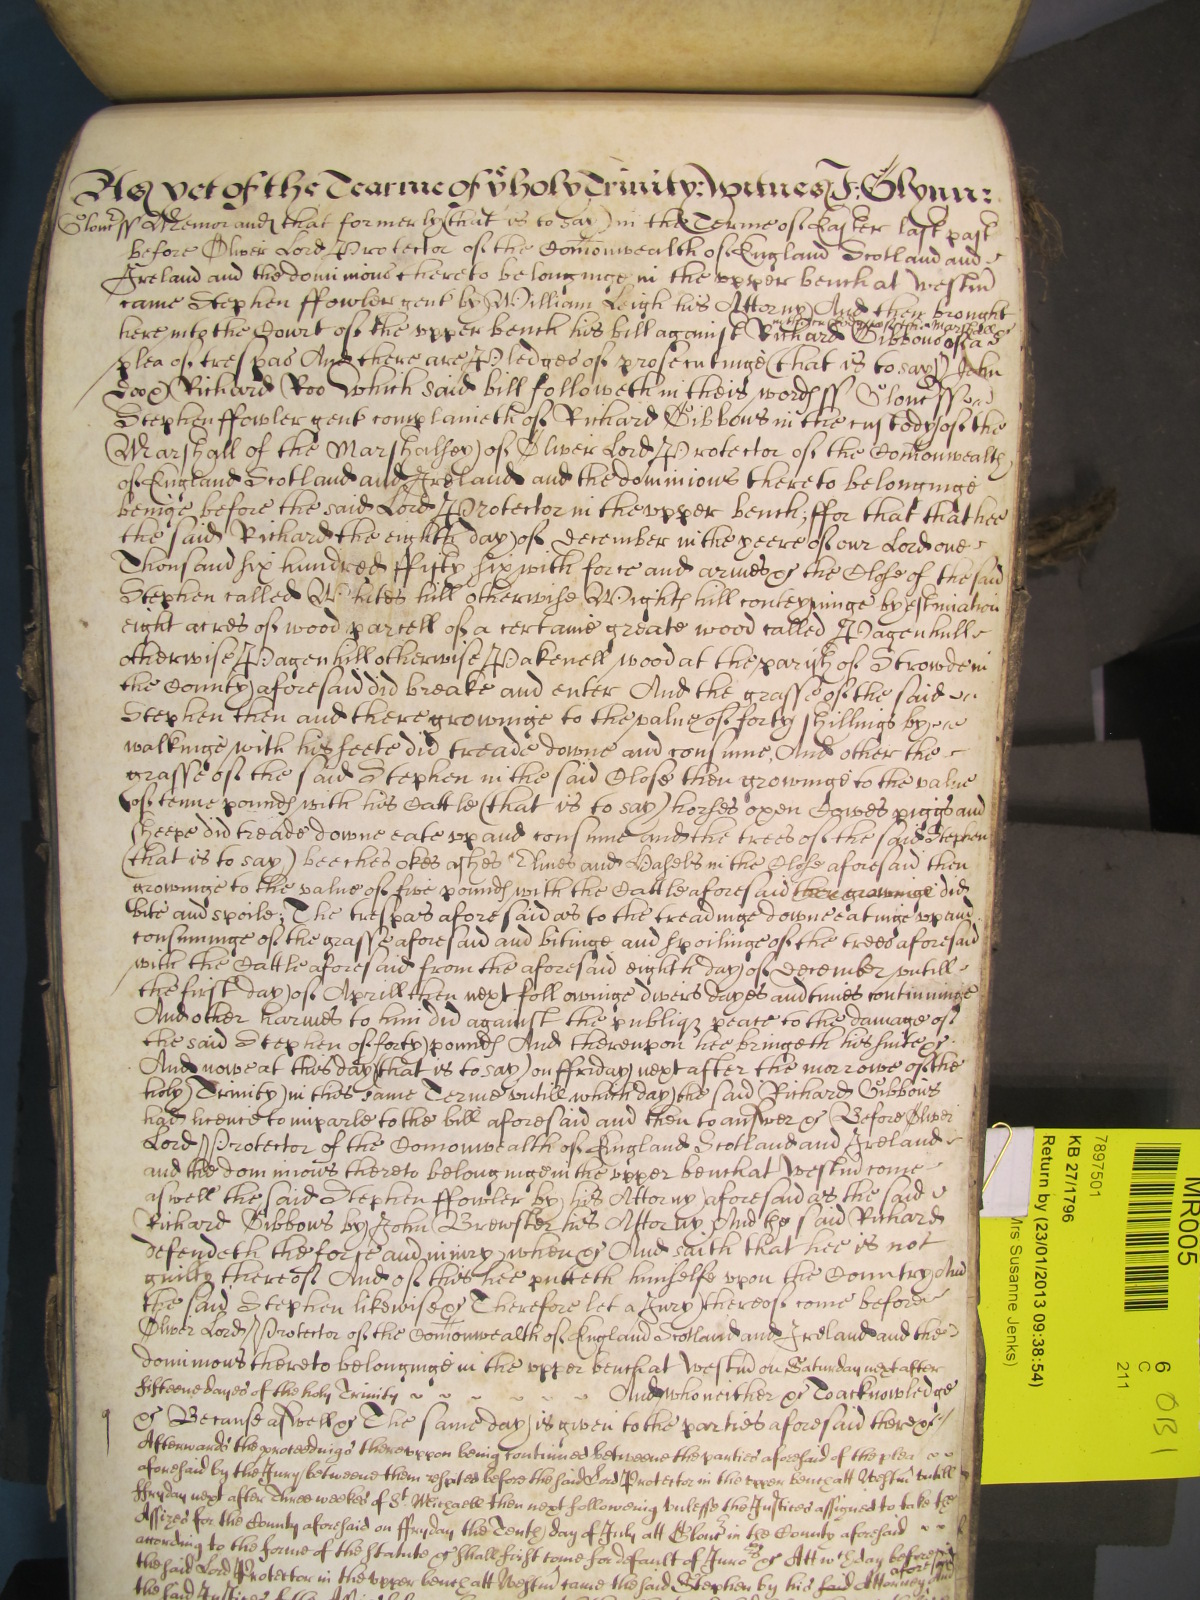 As yet of the Tearme of ye holy Trinity: Witnes J: Glynn:
Glouc ss Memorand that formerly (that is to say) in the Terme of Easter last past
before Oliver Lord Protector of the Comonwealth of England Scotland and
Ireland and the dominions thereto belonginge in the upper bench at Westm
came Stephen ffowler gent by William Leigh his Attorny And then brought
here into the Court of the upper bench his bill against Richard Gibbons of a
plea of trespas And there are Pledges of prosecutinge (that is to say) John
Doo & Richard Roo Which said bill followeth in theis words ss Glouc ss
Stephen ffowler gent complaineth of Richard Gibbons in the custody of the
Marshall of the Marshalsey of Oliver Lord Protector of the Comonwealth
of England Scotland and Ireland and the dominions thereto belonginge
beinge before the said Lord Protector in the upper bench; ffor that that hee
the said Richard the eighth day of December in the yeere of our Lord one
Thousand six hundred ffifty six with force and armes &c the Close of the said
Stephen called Whites hill otherwise Wights hill conteyninge by estimation
eight acres of wood parcell of a certaine greate wood called Pagenhull
otherwise Pagenhill otherwise Pakenell wood at the parish of Strowde in
the County aforesaid did breake and enter And the grasse of the said
Stephen then and there growinge to the value of forty shillings by
walkinge with his feete did treade downe and consume, And other the
grasse of the said Stephen in the said Close then growinge to the value
of tenne pounds with his Cattle (that is to say) horses oxen Cowes piggs and
sheepe did treade downe eate up and consume and the trees of the said Stephen
(that is to say) beeches okes ashes Elmes and Hasels in the Close aforesaid then
growinge to the value of five pounds with the Cattle aforesaid then growinge did
bite and spoile; The trespas aforesaid as to the treadinge downe eatinge up and
consuminge of the grasse aforesaid and bitinge and spoilinge of the trees aforesaid
with the Cattle aforesaid from the aforesaid eighth day of December untill
the first day of Aprill then next followinge divers dayes and times continuinge
And other harmes to him did against the publiq peace to the damage of
the said Stephen of forty pounds And thereupon hee bringeth his suite &c
And nowe at this day (that is to say) on ffriday next after the morrowe of the
holy Trinity in this same Terme untill which day the said Richard Gibbons
had licence to imparle to the bill aforesaid and then to answer &c Before Oliver
Lord Protector of the Comonwealth of England Scotland and Ireland
and the dominions thereto belonginge in the upper bench at Westm come
aswell the said Stephen ffowler by his Attorny aforesaid as the said
Richard Gibbons by John Brewster his Attorny And the said Richard
defendeth the force and iniury when &c And saith that hee is not
guilty thereof And of this hee putteth himselfe upon the Country And
the said Stephen likewise &c Therefore let a Jury thereof come before
Oliver Lord Protector of the Comonwealth of England Scotland and Ireland and the
dominions thereto belonginge in the upper bench at Westm on Saturday next after
fifteene dayes of the holy Trinity And who neither &c To acknowledge
&c Because aswell &c The same day is given to the parties aforesaid there &c
Afterwards the proceedings thereuppon being continued betweene the parties aforesaid of the plea
aforesaid by the Jury betweene them respited before the said Lord Protector in the upper bench att Westm untill
ffryday next after Three weekes of St Michaell then next following unlesse the Justices assigned to take the
Assizes for the County aforesaid on ffryday the Tenth day of July att Glouc in the County aforesaid
according to the forme of the Statute &c shall first come for default of Juro &c Att wch day before
the said Lord Protector in the upper bench att Westm came the said Stephen by his said Attorney aforesaid And
MR005
6
C
211
7897501
KB 27/1796
Return by (23/01/2013 09:38:54)
Mrs Susanne Jenks)